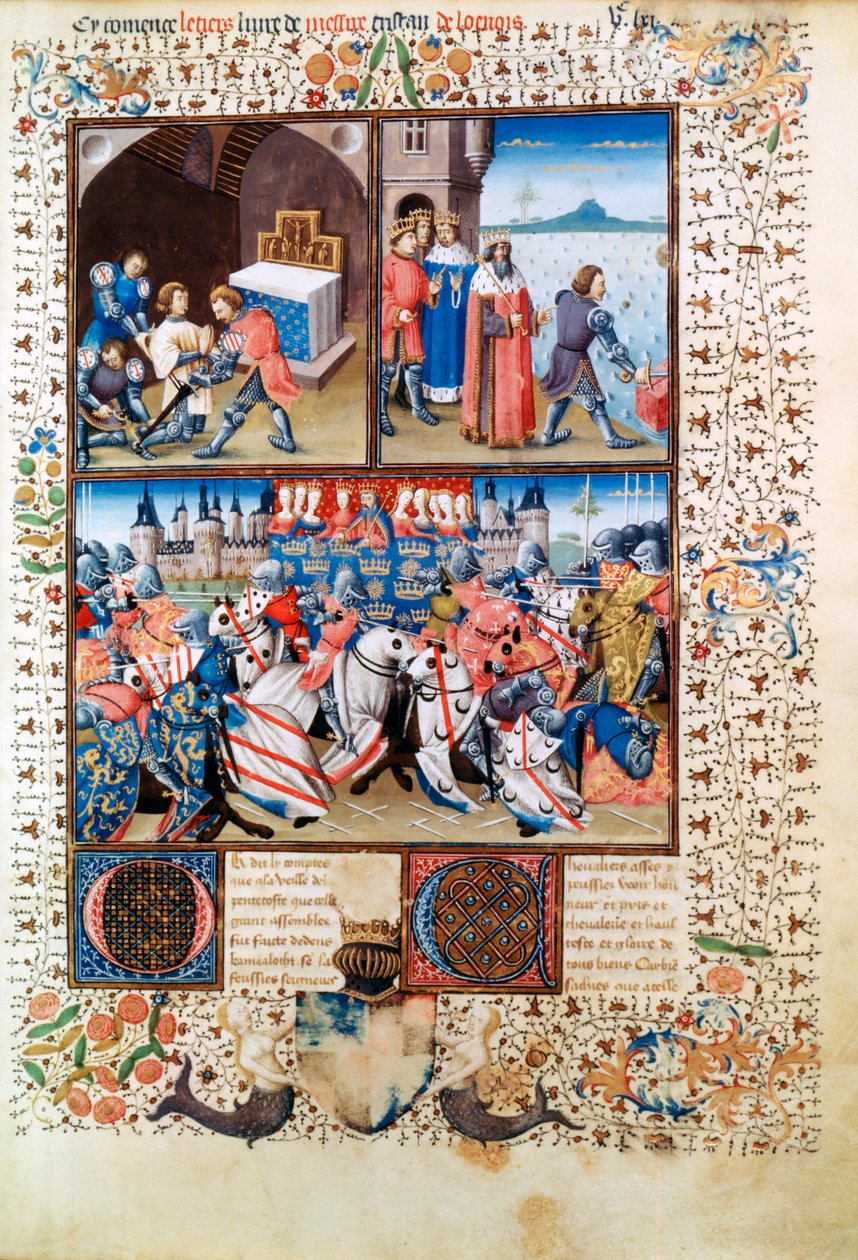 Cy comence le tiers liure de messire tristan de loenois.
Vc lxi
Or dit ly comptes
que a la veille de
pentecoste que celle
grant assemblee
fut faicte dedens
kamaaloth. Se la
feussies seigneurs
Chevaliers asses y
peussiez veoir hon
neur et pris et
chevalerie et haul
tesse et gloire de
tous biens Car bie
sachies que a celle